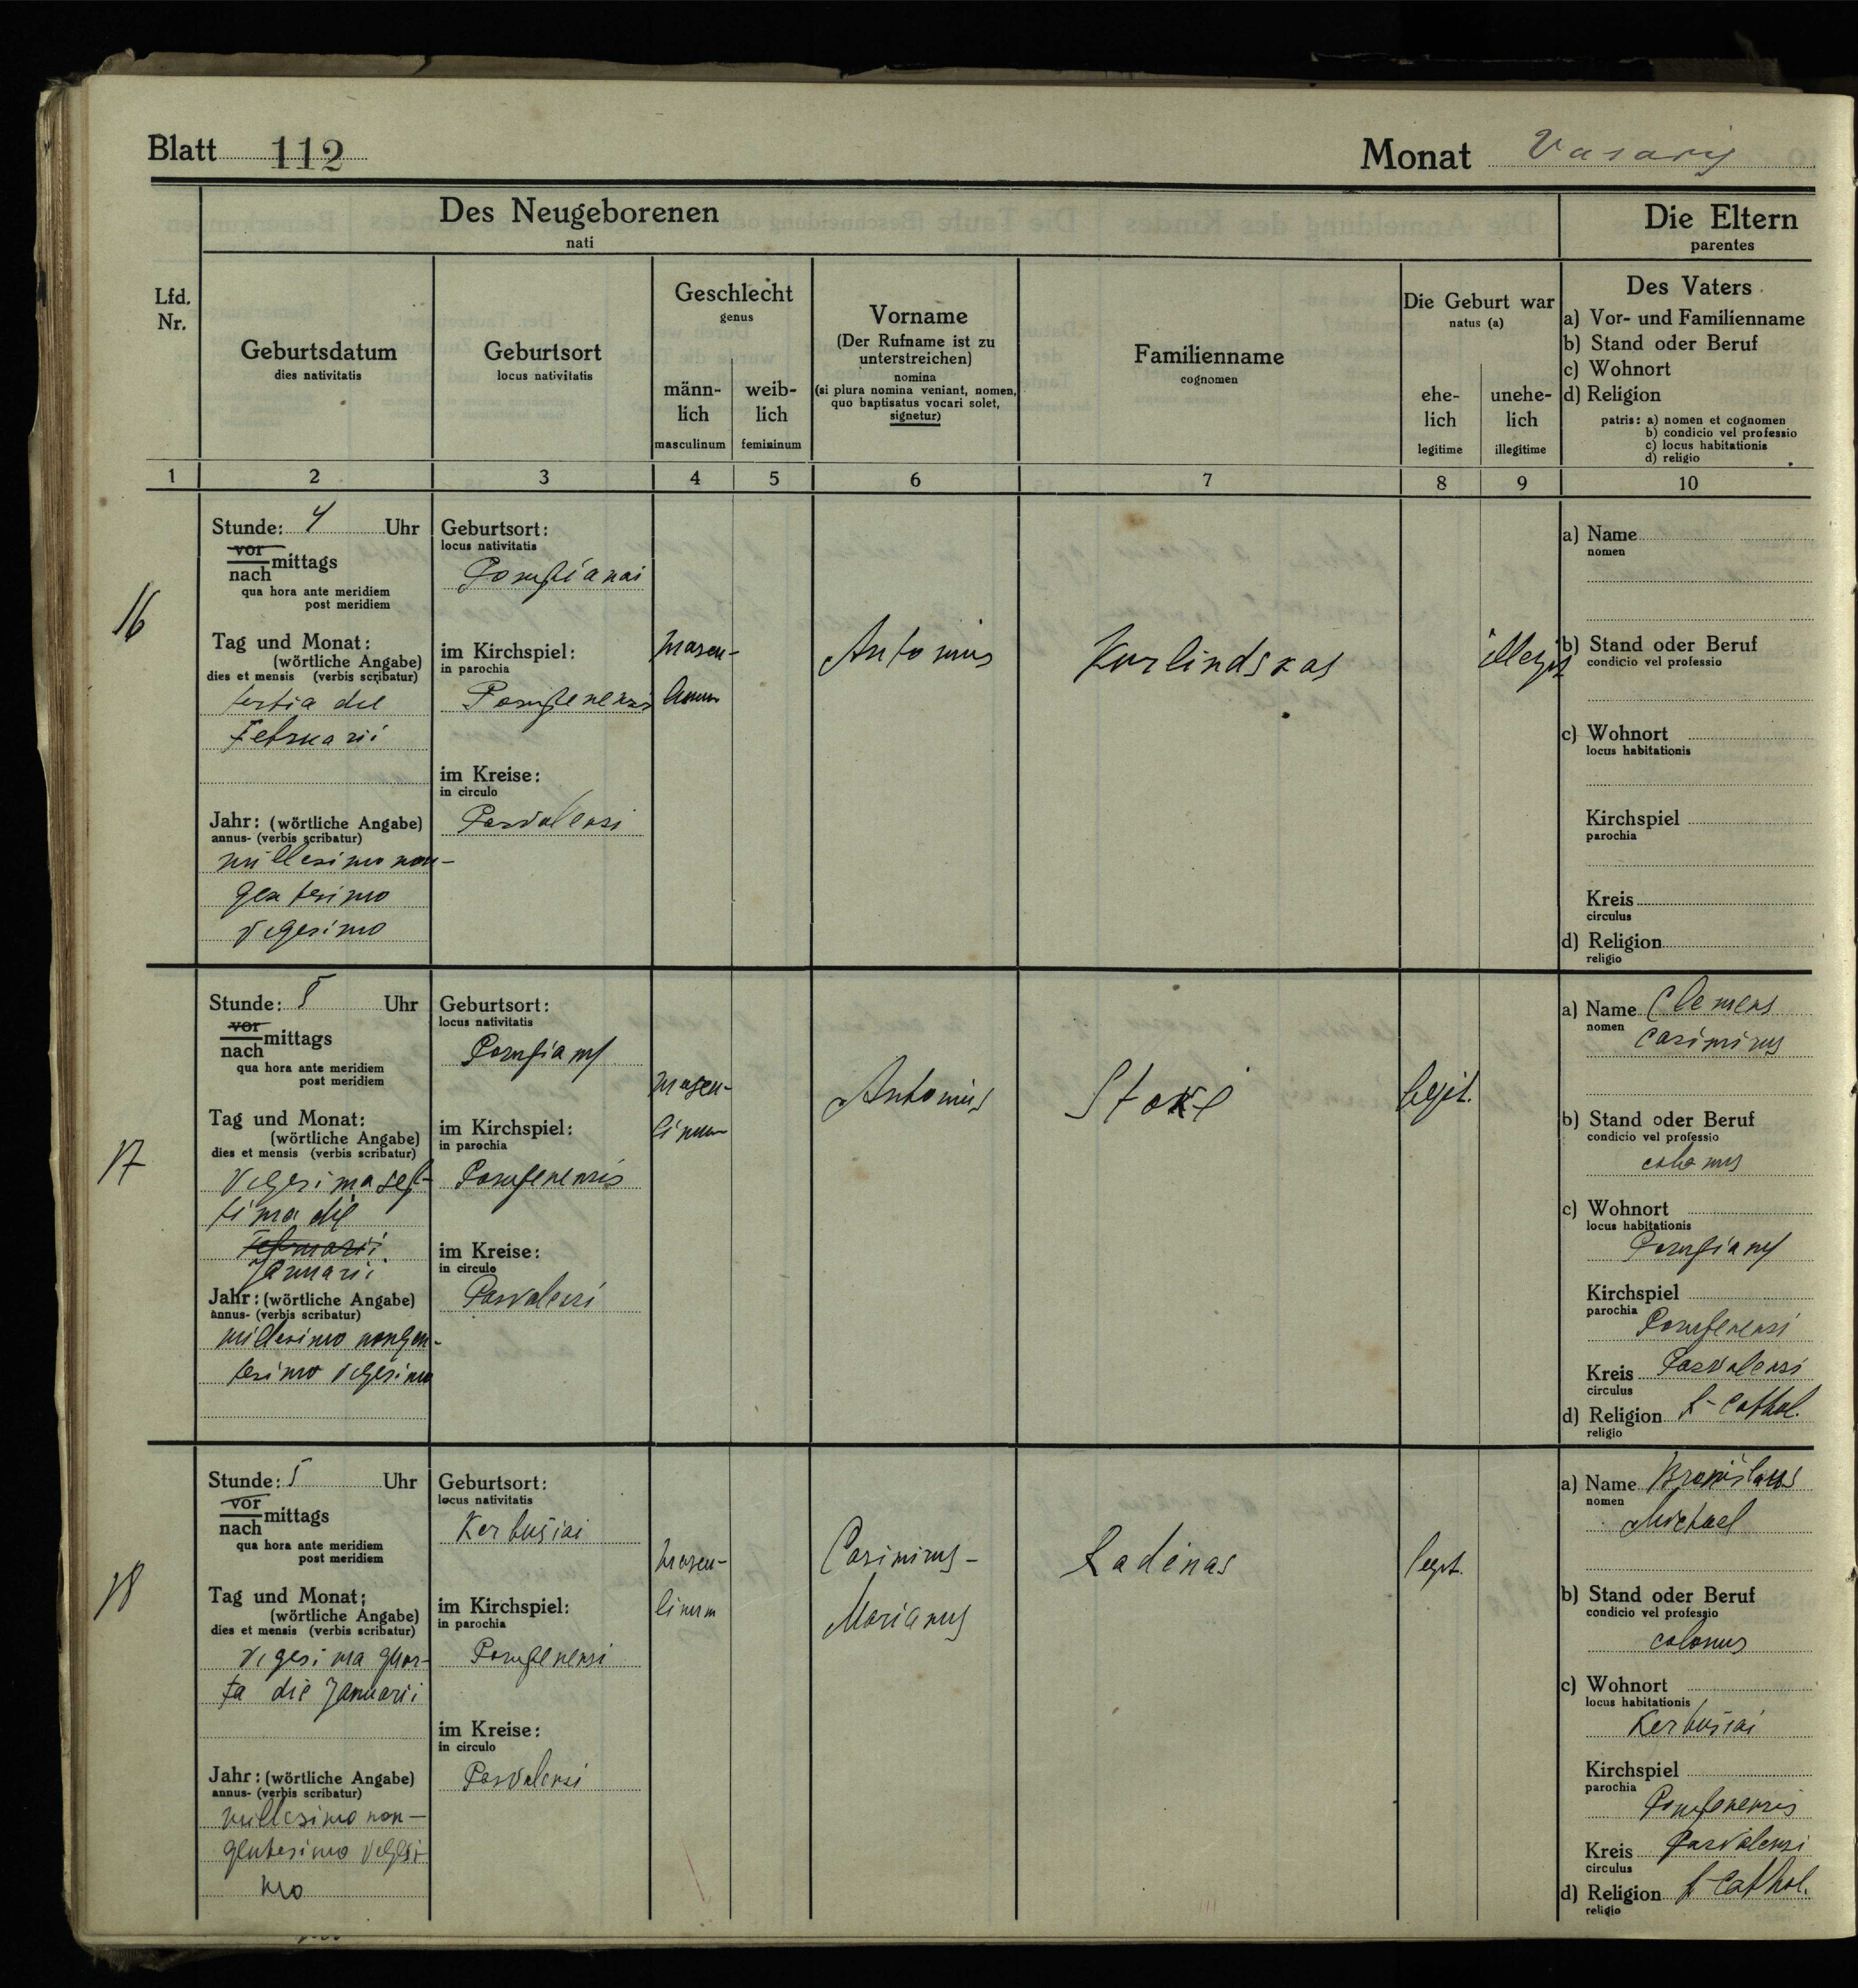 Blatt 112
Monat Vasarij
Des Neugeborenen
nati
Die Eltern
parentes
Lfd.
Nr.
Geburtsdatum
dies nativitatis
Geburtsort
locus nativitatis
Geschlecht
genus
männ-
lich
masculinum
weib-
lich
femininum
Vorname
(Der Rufname ist zu
unterstreichen)
nomina
(si plura nomina veniant, nomen,
quo baptisatus vocari solet,
signetur)
Familienname
cognomen
Die Geburt war
natus (a)
ehe-
lich
legitime
unehe-
lich
illegitime
Des Vaters
a) Vor- und Familienname
b) Stand oder Beruf
c) Wohnort
d) Religion
patris: a) nomen et cognomen
b) condicio vel professio
c) locus habitationis
d) religio
1 2 3 4 5 6 7 8 9 10
16
Stunde: 4 Uhr
vor
mittags
nach
qua hora ante meridiem
post meridiem
Tag und Monat:
(wörtliche Angabe)
dies et mensis (verbis scribatur)
tertia die
Februarii
Jahr: (wörtliche Angabe)
annus- (verbis scribatur)
millesimo non-
gentesimo
vigesimo
Geburtsort:
locus nativitatis
im Kirchspiel:
in parochia
im Kreise:
in circulo
Pasvalensi
mascu-
linum
Antonius
Kurlindskas
illegit
a) Name
nomen
b) Stand oder Beruf
condicio vel professio
c) Wohnort
locus habitationis
Kirchspiel
parochia
Kreis
circulus
d) Religion
religio
17
Stunde: 5 Uhr
vor
mittags
nach
qua hora ante meridiem
post meridiem
Tag und Monat:
(wörtliche Angabe)
dies et mensis (verbis scribatur)
vigesima sep-
tima die
Februarii
Januarii
Jahr: (wörtliche Angabe)
annus- (verbis scribatur)
millesimo nongen-
tesimo vigesimo
Geburtsort:
locus nativitatis
im Kirchspiel:
in parochia
im Kreise:
in circulo
Pasvalensi
mascu-
linum
Antonius
Stokė
legit.
a) Name Clemens
nomen
Casimirus
b) Stand oder Beruf
condicio vel professio
colonus
c) Wohnort
locus habitationis
Kirchspiel
parochia
Kreis Pasvalensi
circulus
d) Religion r-cathol.
religio
18
Stunde: 5 Uhr
vor
mittags
nach
qua hora ante meridiem
post meridiem
Tag und Monat:
(wörtliche Angabe)
dies et mensis (verbis scribatur)
vigesima quar-
ta die Januarii
Jahr: (wörtliche Angabe)
annus- (verbis scribatur)
millesimo non-
gentesimo vigesi-
mo
Geburtsort:
locus nativitatis
Kerbušiai
im Kirchspiel:
in parochia
im Kreise:
in circulo
Pasvalensi
mascu-
linum
Casimirus-
Marianus
Ladėnas
legit.
a) Name Bronislaus
nomen
Michael
b) Stand oder Beruf
condicio vel professio
colonus
c) Wohnort
locus habitationis
Kerbušiai
Kirchspiel
parochia
Kreis Pasvalensi
circulus
d) Religion r-cathol.
religio